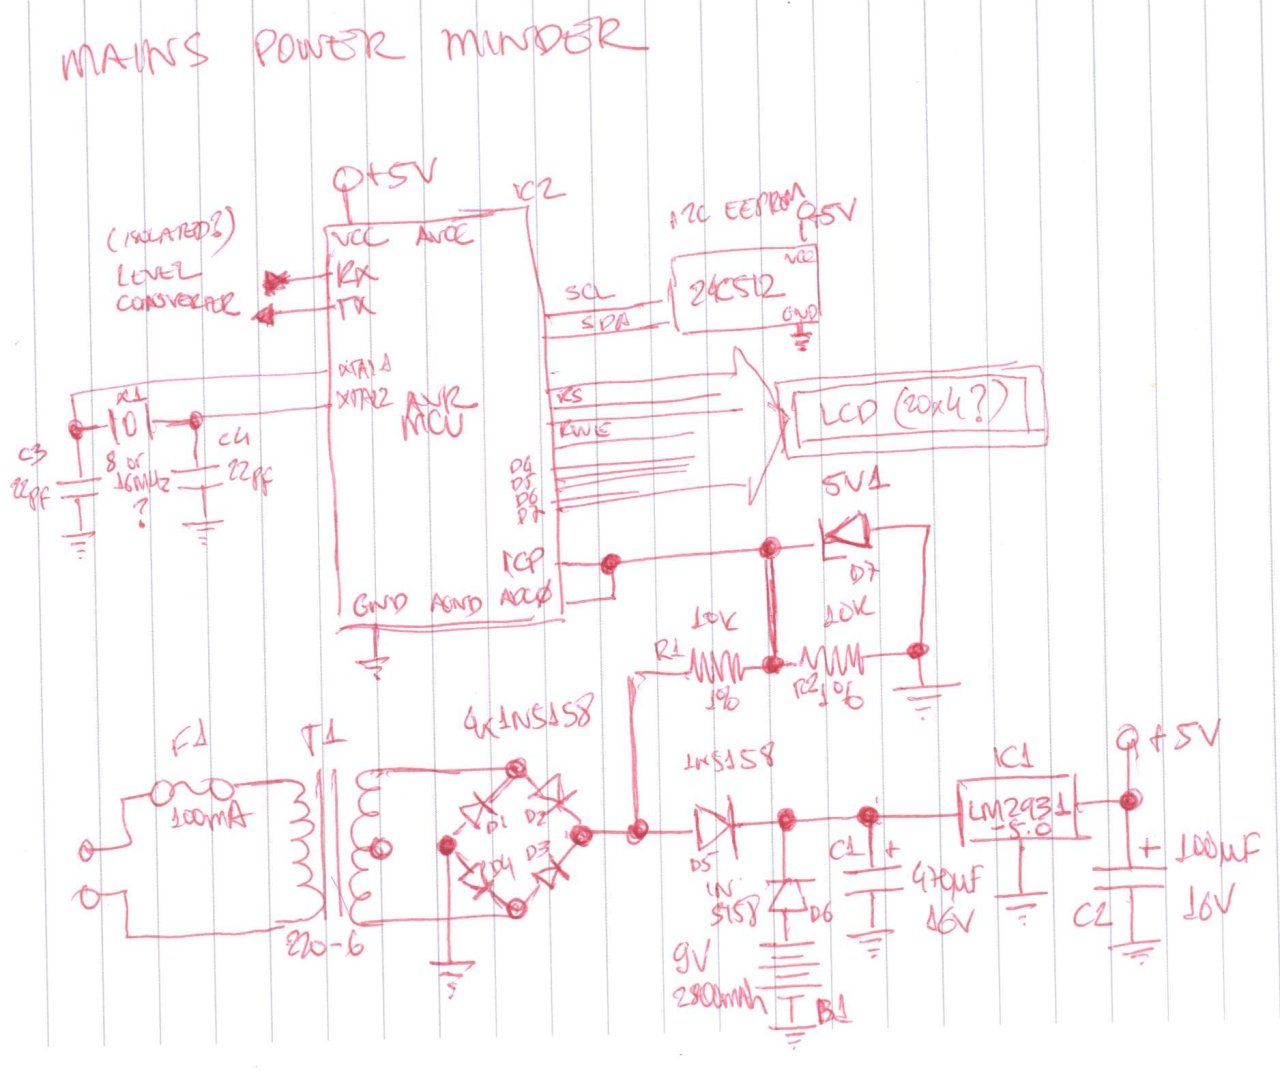 MAINS POWER MINDER
+5V
IC2
I2C EEPROM
+5V
(ISOLATED?)
LEVEL
CONVERTER
VCC AVCC
RX
TX
SCL
SDA
24C512
VCC
GND
XTAL1
XTAL2
X1
AVR
MCU
RS
R/WE
D4
D5
D6
D7
LCD (20x4?)
C3
22pF
8 or
16MHz
?
C4
22pF
5V1
D7
ICP
ADC0
GND AGND
10K
R1
1%
10K
R2 1%
F1
100mA
T1
220-6
4x1N5158
D1
D2
D3
D4
1N5158
D5
1N
5158
D6
9V
2800mAh
B1
C1 +
470µF
16V
IC1
LM2931
-5.0
+5V
+
100µF
16V
C2